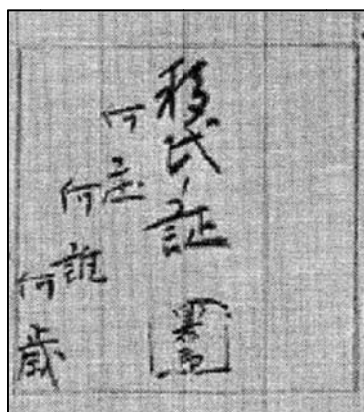 移民ノ証
何
何誰
何歳